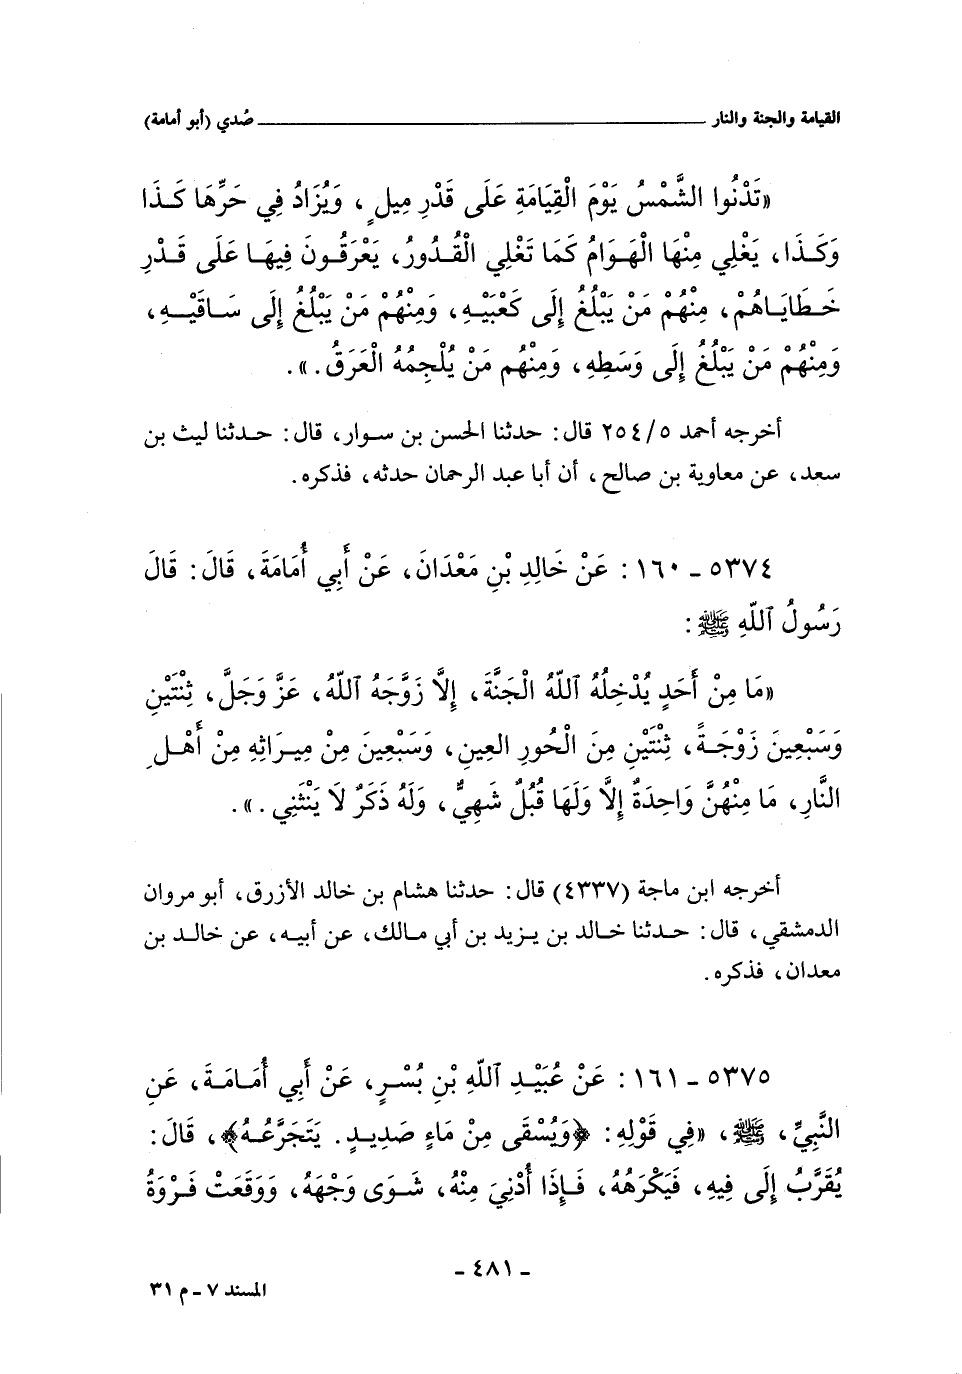 القيامة والجنة والنار ــــــــــــــــــــــــــــ صُدي (أبو أمامة)
«تَدْنُوا الشَّمْسُ يَوْمَ الْقِيَامَةِ عَلَى قَدْرِ مِيلٍ، وَيُزَادُ فِي حَرِّهَا كَذَا
وَكَذَا، يَغْلِي مِنْهَا الْهَوَامُّ كَمَا تَغْلِي الْقُدُورُ، يَعْرَقُونَ فِيهَا عَلَى قَدْرِ
خَطَايَاهُمْ، مِنْهُمْ مَنْ يَبْلُغُ إِلَى كَعْبَيْهِ، وَمِنْهُمْ مَنْ يَبْلُغُ إِلَى سَاقَيْهِ،
وَمِنْهُمْ مَنْ يَبْلُغُ إِلَى وَسَطِهِ، وَمِنْهُم مَنْ يُلْجِمُهُ الْعَرَقُ.».
أخرجه أحمد ٢٥٤/٥ قال: حدثنا الحسن بن سوار، قال: حدثنا ليث بن
سعد، عن معاوية بن صالح، أن أبا عبد الرحمان حدثه، فذكره.
٥٣٧٤ - ١٦٠: عَنْ خَالِدِ بْنِ مَعْدَانَ، عَنْ أَبِي أُمَامَةَ، قَالَ: قَالَ
رَسُولُ ٱللَّهِ ﷺ:
«مَا مِنْ أَحَدٍ يُدْخِلُهُ ٱللَّهُ الْجَنَّةَ، إِلَّا زَوَّجَهُ ٱللَّهُ، عَزَّ وَجَلَّ، ثِنْتَيْنِ
وَسَبْعِينَ زَوْجَةً، ثِنْتَيْنِ مِنَ الْحُورِ العِينِ، وَسَبْعِينَ مِنْ مِيرَاثِهِ مِنْ أَهْلِ
النَّارِ، مَا مِنْهُنَّ وَاحِدَةٌ إِلَّا وَلَهَا قُبُلٌ شَهِيٌّ، وَلَهُ ذَكَرٌ لَا يَنْثَنِي.».
أخرجه ابن ماجة (٤٣٣٧) قال: حدثنا هشام بن خالد الأزرق، أبو مروان
الدمشقي، قال: حدثنا خالد بن يزيد بن أبي مالك، عن أبيه، عن خالد بن
معدان، فذكره.
٥٣٧٥ - ١٦١: عَنْ عُبَيْدِ ٱللَّهِ بْنِ بُسْرٍ، عَنْ أَبِي أُمَامَةَ، عَنِ
النَّبِيِّ، ﷺ، «فِي قَوْلِهِ: ﴿وَيُسْقَى مِنْ مَاءٍ صَدِيدٍ. يَتَجَرَّعُهُ﴾، قَالَ:
يُقَرَّبُ إِلَى فِيهِ، فَيَكْرَهُهُ، فَإِذَا أُدْنِيَ مِنْهُ، شَوَى وَجْهَهُ، وَوَقَعَتْ فَرْوَةُ
- ٤٨١ -
المسند ٧ - م ٣١